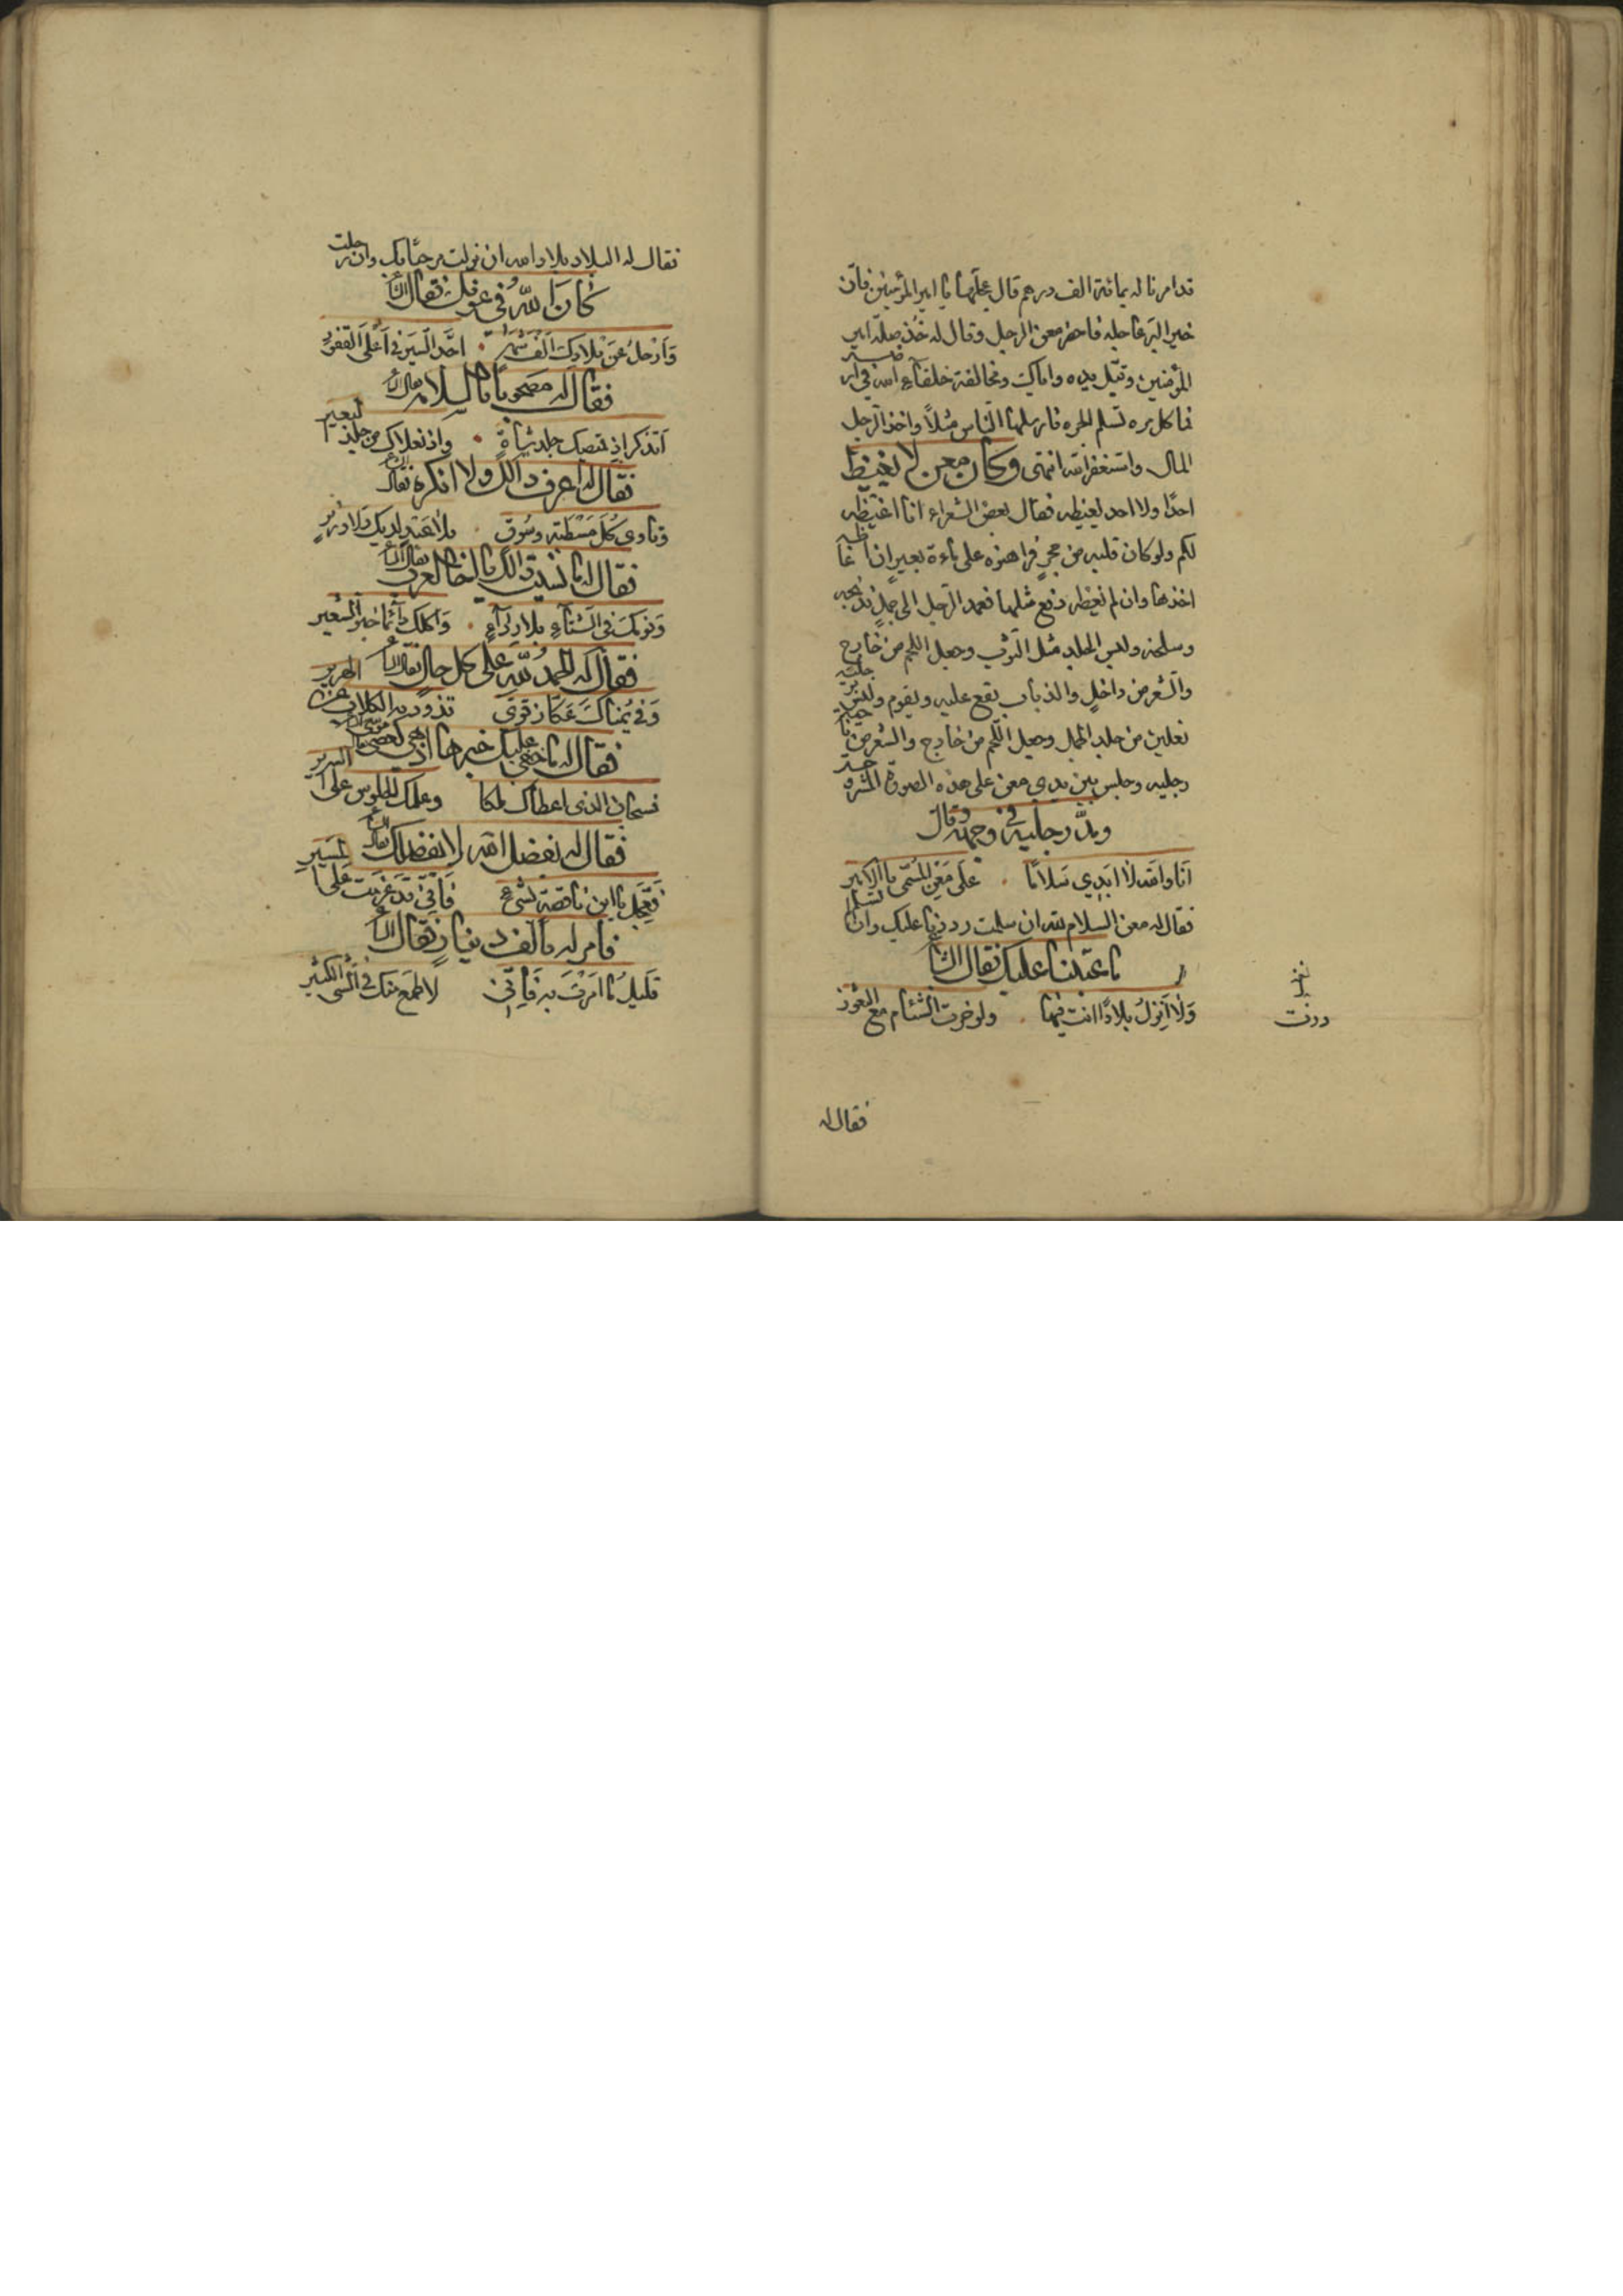 قد امرنا له بمائة الف درهم قال عجلها يا امير المؤمنين فان
خير البر عاجله فاحضر معن الرجل وقال له خذ صلة امير
المؤمنين وقبل يده واياك ومخالفة خلفاء الله في ارضه
فما كل مره تسلم الجره فارسلها الناس مثلاً واخذ الرجل
المال واستغفر الله انتهى وكان معن لا يغيظ
احدًا ولا احد يغيظه فقال بعض الشعراء انا اغيظه
لكم ولو كان قلبه من حجرٍ فراهنوه على مائة بعيرٍ ان غاظه
اخذها وان لم يغظه دفع مثلها فعمد الرجل الى جملٍ فذبحه
وسلخه ولبس الجلد مثل الثوب وجعل اللحم من خارج
والشعر من داخلٍ والذباب يقع عليه ويقوم ولبس برجليه
نعلين من جلد الجمل وجعل اللحم من خارج والشعر من جانب
رجليه وجلس بين يدي معن على هذه الصورة
ومدّ رجليه في وجهه وقال
انا والله لا ابدي سلامًا . على معن المسمى بالامير
فقال له معن السلام لله ان سلمت رددنا عليك وان لم تسلم
ما عتبنا عليك فقال الشاعر
ولا انزل بلادًا انت فيها . ولو حزت الشئام مع الثغور
فقال له
فقال له البلاد بلاد الله ان نزلت مرحبًا بك وان رحلت
كان الله في عونك فقال الشاعر
وارحل عن بلادك الف شهر . اجد السير في اعلى القفور
فقال له مصحوبا بالسلامه فقال الشاعر
اتذكر اذ قميصك جلد شاة . واذ نعلاك من جلد البعير
فقال له اعرف ذالك ولا انكره فقال الشاعر
وتاوى كل مسطبة وسوق . بلا عبد لديك ولا وزير
فقال له ما نسيت ذالك يا اخا العرب فقال الشاعر
ونومك في الشتاء بلا رداء . واكلك دائما خبز الشعير
فقال له الحمد لله على كل حال فقال الشاعر
وفي يمناك عكاز قوى تذود به الكلاب عن الهرير
فقال له ما خفي عليك خبرها اذ هي كعصى موسى
فسبحان الذي اعطاك ملكا وعلمك الجلوس على السرير
فقال له بفضل الله لا بفضلك فقال الشاعر
فعجل يا ابن ناقصة بشيء فاني قد عزمت على المسير
فامر له بالف دينار فقال الشاعر
قليل ما امرت به فاني لاطمع منك في الشى الكثير